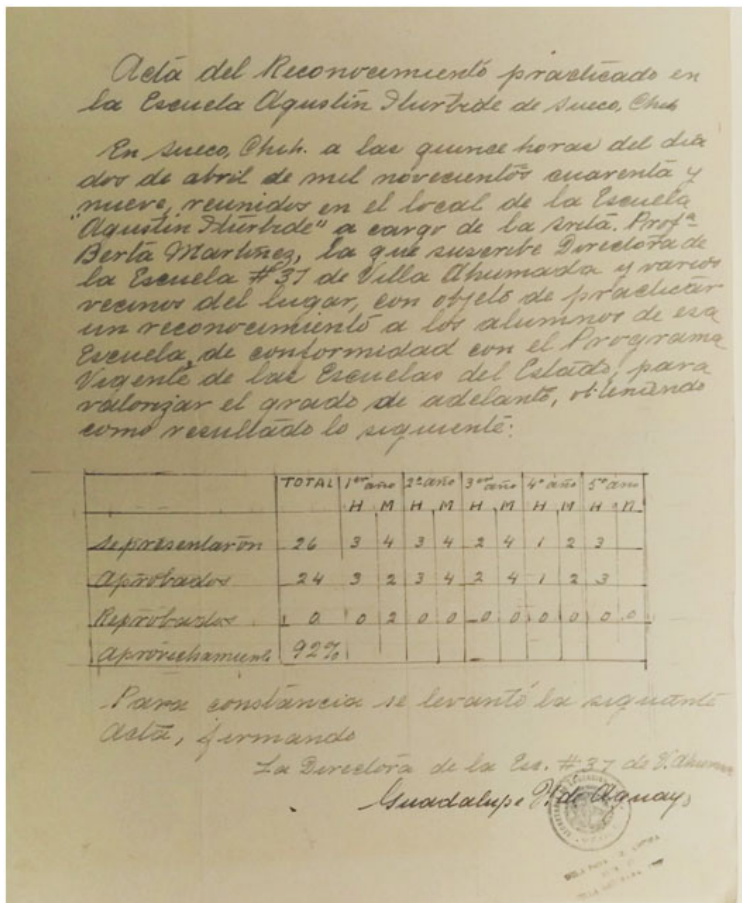 Acta del Reconocimiento practicado en
la Escuela Agustín Iturbide de Sueco, Chih
En Sueco, Chih. a las quince horas del dia
dos de abril de mil novecientos cuarenta y
nueve, reunidos en el local de la Escuela
"Agustín Iturbide" a cargo de la Srita. Profª
Berta Martínez, la que suscribe Directora de
la Escuela #37 de Villa Ahumada y varios
vecinos del lugar, con objeto de practicar
un reconocimiento a los alumnos de esa
Escuela, de conformidad con el Programa
Vigente de las Escuelas del Estado, para
valorizar el grado de adelanto, obteniendo
como resultado lo siguiente:
TOTAL 1er año 2º año 3er año 4º año 5º año
H M H M H M H M H M
Se presentaron 26 3 4 3 4 2 4 1 2 3
Aprobados 24 3 2 3 4 2 4 1 2 3
Reprobados 0 0 2 0 0 0 0 0 0 0 0
Aprovechamient 92%
Para constancia se levantó la siguiente
Acta, firmando
La Directora de la Esc. #37 de V. Ahumada
Guadalupe de Aguayo